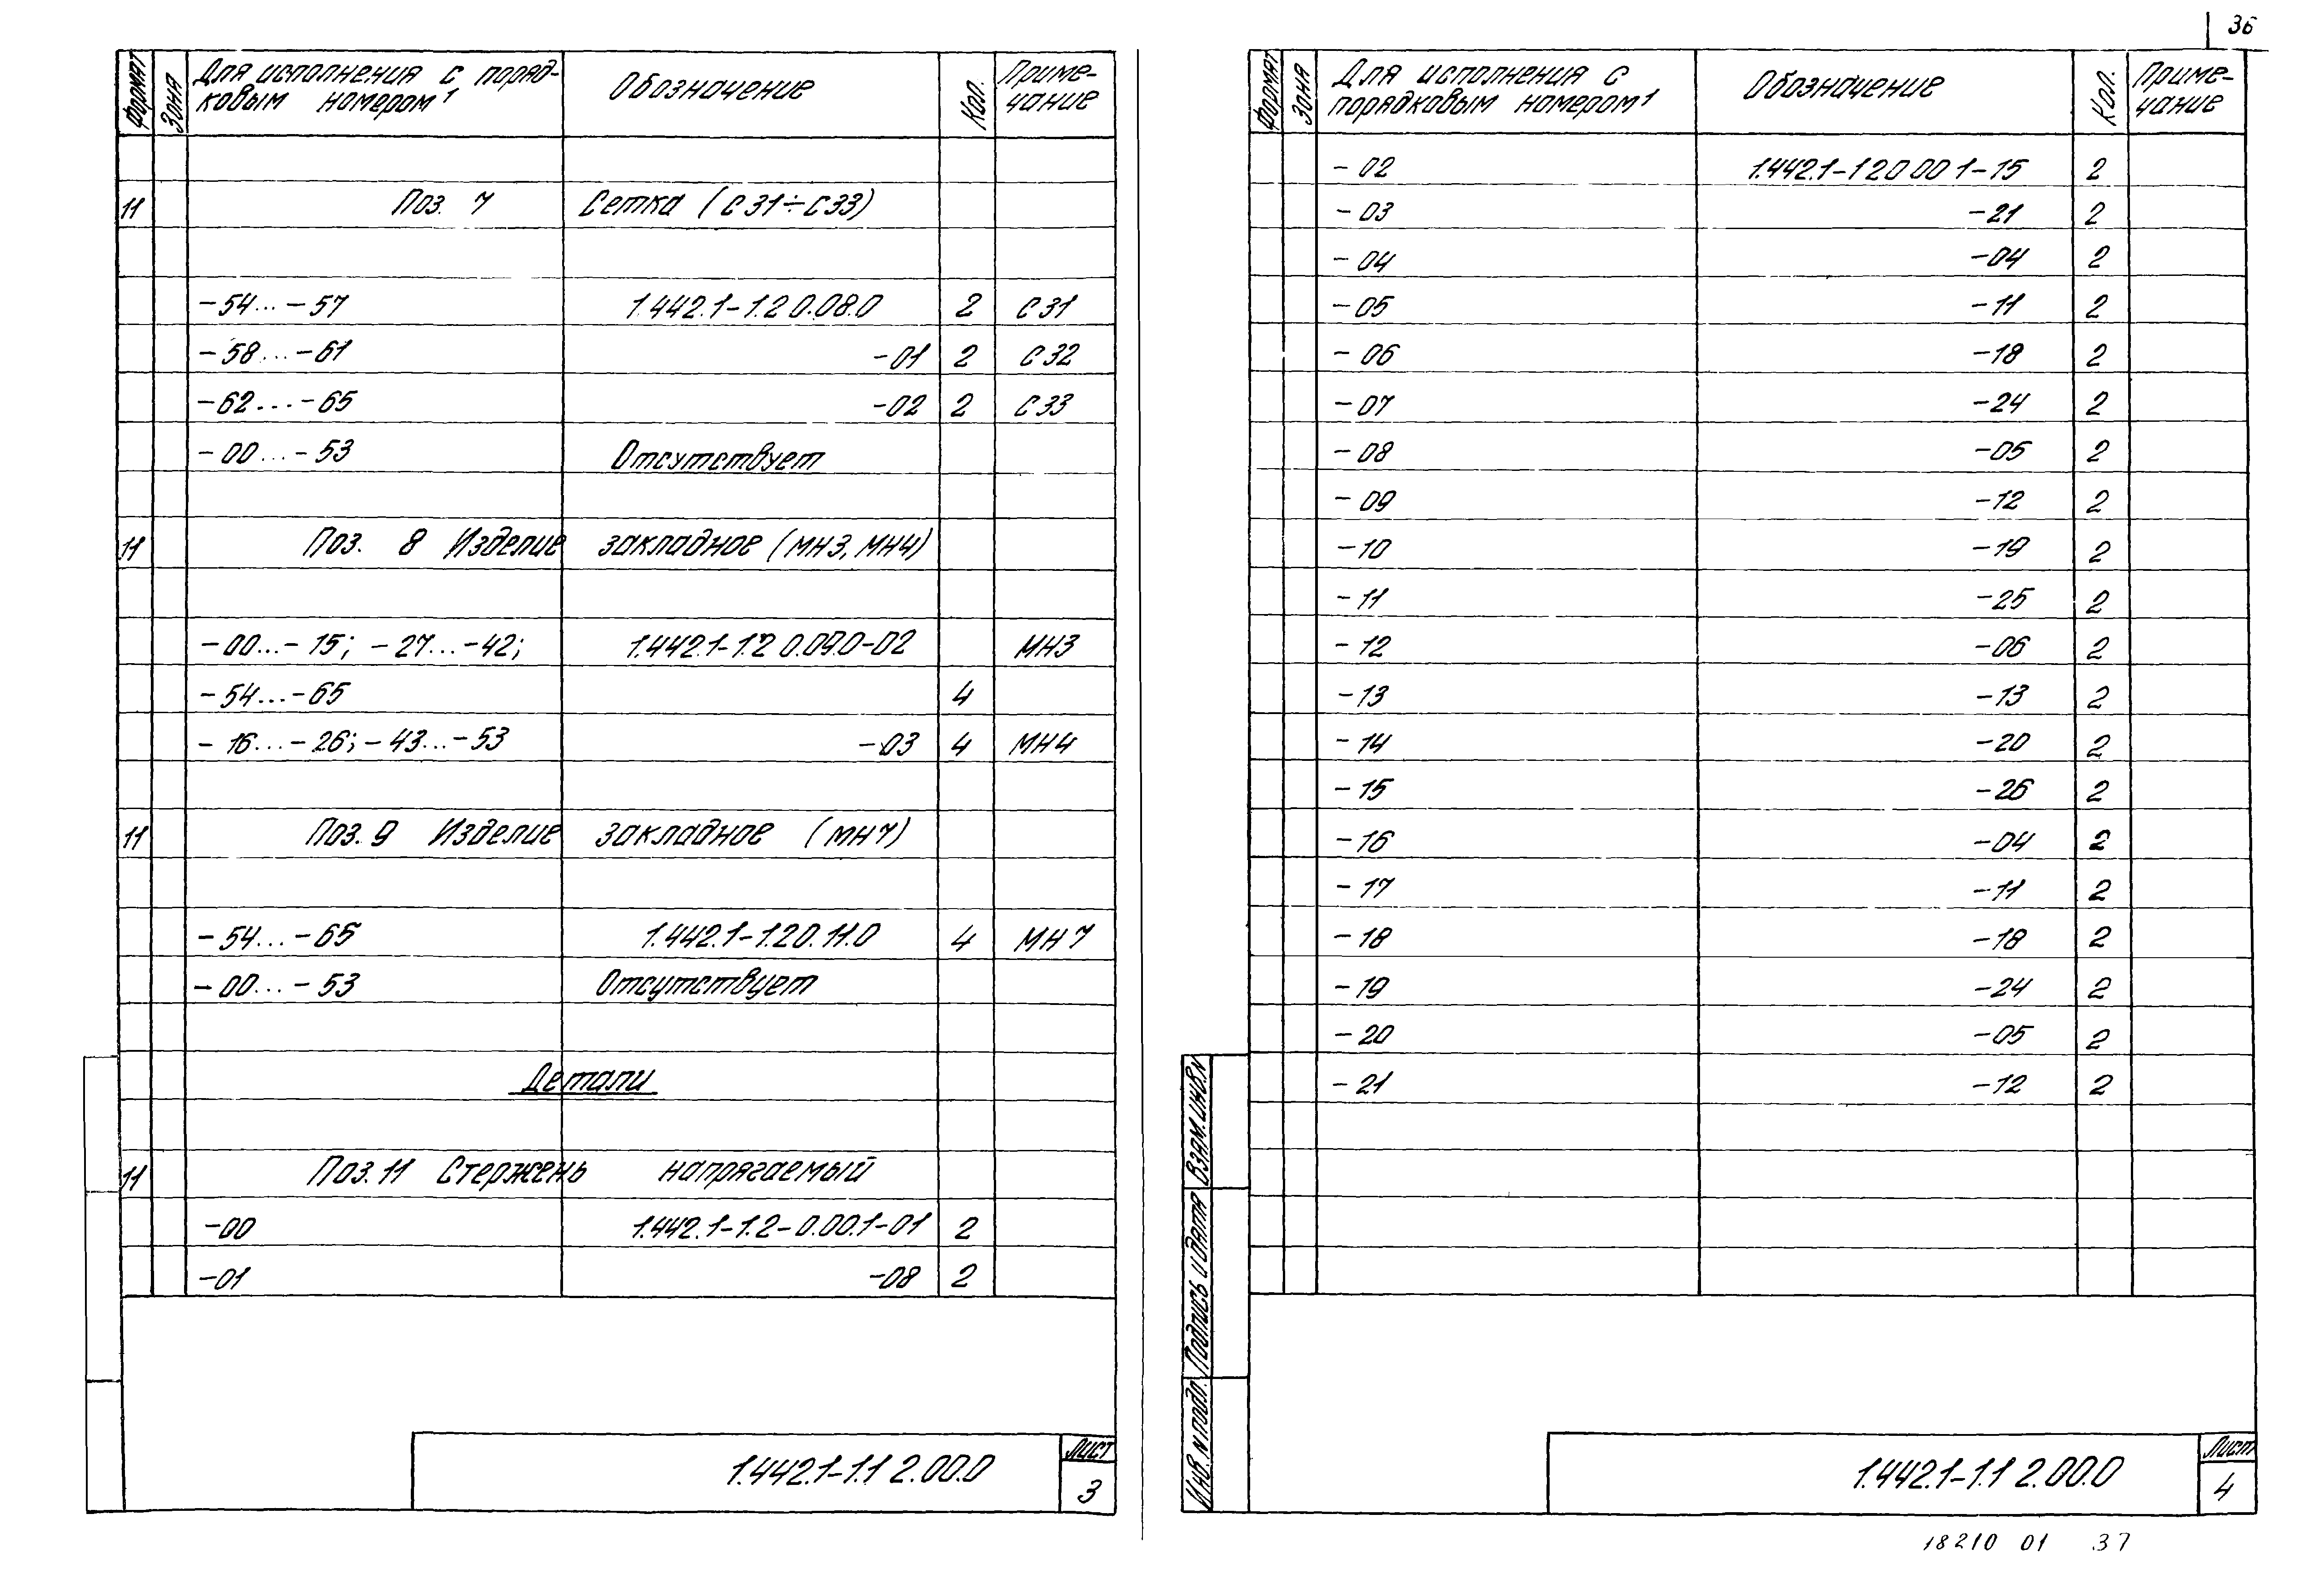 36
Формат Зона Для исполнения с поряд- Обозначение Кол. Приме-
ковым номером¹ чание
11 Поз. 7 Сетка (С31÷С33)
-54...-57 1.442.1-1.2 0.08.0 2 С31
-58...-61 -01 2 С32
-62...-65 -02 2 С33
-00...-53 Отсутствует
11 Поз. 8 Изделие закладное (МН3, МН4)
-00...-15; -27...-42; 1.442.1-1.2 0.09.0-02 МН3
-54...-65 4
-16...-26; -43...-53 -03 4 МН4
11 Поз. 9 Изделие закладное (МН7)
-54...-65 1.442.1-1.20.11.0 4 МН7
-00...-53 Отсутствует
Детали
11 Поз. 11 Стержень напрягаемый
-00 1.442.1-1.2-0.00.1-01 2
-01 -08 2
1.442.1-1.1 2.00.0
Лист
3
Формат Зона Для исполнения с Обозначение Кол. Приме-
порядковым номером¹ чание
-02 1.442.1-1 2 0 00 1-15 2
-03 -21 2
-04 -04 2
-05 -11 2
-06 -18 2
-07 -24 2
-08 -05 2
-09 -12 2
-10 -19 2
-11 -25 2
-12 -06 2
-13 -13 2
-14 -20 2
-15 -26 2
-16 -04 2
-17 -11 2
-18 -18 2
-19 -24 2
-20 -05 2
-21 -12 2
Взам. инв. N
Подпись и дата
Инв. N подл.
1.442.1-1.1 2.00.0
Лист
4
18210 01 37